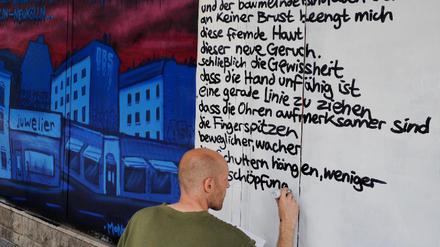 und der baumelnde
an Keiner Brust beengt mich
diese fremde Haut
dieser neue Geruch.
schließlich die Gewissheit
dass die Hand unfähig ist
eine gerade Linie zu ziehen
dass die Ohren aufmerksamer sind
die Fingerspitzen
beweglicher, wacher
Schultern hängen, weniger
schöpfung
juwelier